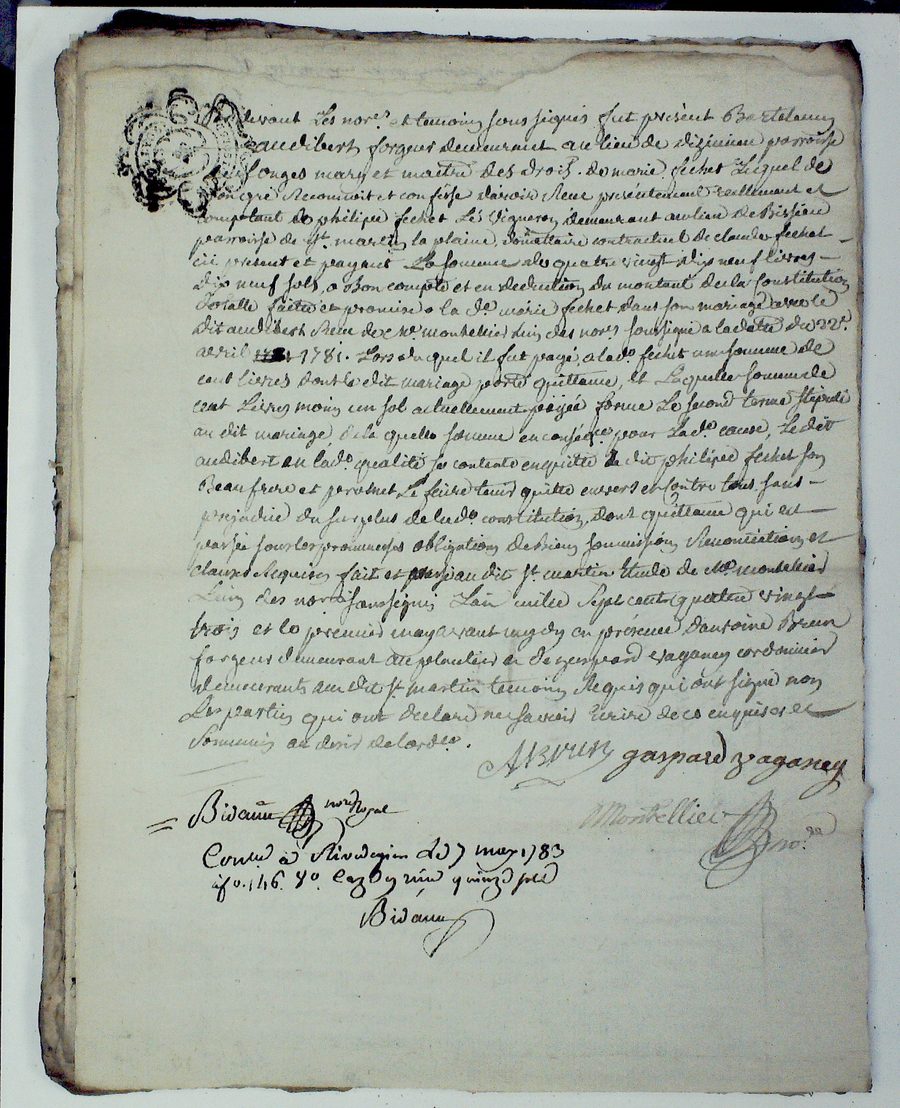 Par devant Les nores. et temoins sous signes fut présent Bartelemy
audibert forgeur demeurant au lieu de dizimieu parroisse
de Longes mary et maitre des droits de marie fechet Lequel de
son gré Reconnoit et confesse d'avoir Reçu présentement reellement et
comptant de philipe fechet Lés Vigneron demeurant au lieu de Bissieu
parroisse de St. martin la plaine, donnataire contractuel de claude fechet
icii présent et payant La somme de quatre vingt dix neuf livres
dix neuf sols, a Bon compte et en deduction du montant de la Constitution
dotalle faitte et promise a la de. marie fechet dans son mariage avec le
dit audibert Reçu de Me. montellier L'un des nores. soussigné a la datte du 22e.
avril 1781. Lors du quel il fut payé a lade. fechet une somme de
cent livres dont le dit mariage porte quittance, et Laquelle somme de
cent Livres moins un sol actuellement payée forme Le second terme stipulé
au dit mariage, de la quelle somme en conséqce. pour lade. cause, Ledit
audibert en lade. qualité se contente en quitte le dit philipe fechet son
Beau frere et promet Le faire tenir quitte envers et contre tous sans
prejudice du surplus de lade. constitution, dont quittance qui est
passée sous les promesses obligations de biens soumissions Renonciations et
clauses Requises fait et passé au dit St. martin Etude de Me. montellier
L'un des nores. soussignés L'an mille Sept cent quatre vingt
trois et le premier may avant midy en présence d'antoine Brun
forgeur demeurant au et de gaspard vaganey cordonnier
demeurants au dit St martin temoins Requis qui ont signé non
Les parties qui ont declaré ne savoir écrire de ce enquises et
Sommées au desir de l'ordce.
ABrun gaspard vaganey
Bidaud nore Royal
Montellier nore.
Conle. à Rivedegier le 7 may 1783
fo. 146. vo. Reçu quinze sols
Bidaud